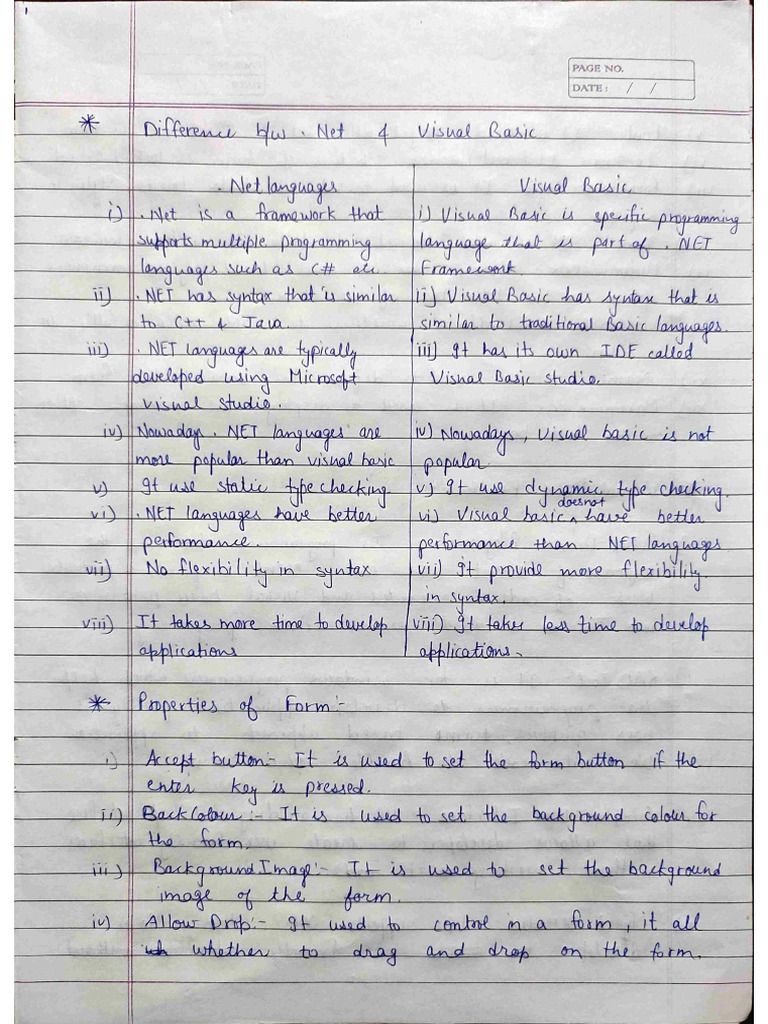 PAGE NO.
DATE: / /
* Difference b/w .Net & Visual Basic
.Net languages
i) .Net is a framework that
supports multiple programming
languages such as C# etc.
ii) .NET has syntax that is similar
to C++ & Java.
iii) .NET languages are typically
developed using Microsoft
visual studio.
iv) Nowadays .NET languages are
more popular than visual basic
v) It use static type checking.
vi) .NET languages have better
performance.
vii) No flexibility in syntax
viii) It takes more time to develop
applications
Visual Basic
i) Visual Basic is specific programming
language that is part of .NET
Framework.
ii) Visual Basic has syntax that is
similar to traditional Basic languages.
iii) It has its own IDE called
Visual Basic studio.
iv) Nowadays, Visual basic is not
popular
v) It use dynamic type checking.
vi) Visual basic doesnot have better
performance than NET languages
vii) It provide more flexibility
in syntax.
viii) It takes less time to develop
applications.
* Properties of Form:-
i) Accept button:- It is used to set the form button if the
enter key is pressed.
ii) BackColour:- It is used to set the background colour for
the form.
iii) Background Image:- It is used to set the background
image of the form.
iv) Allow Drop:- It used to control in a form, it all
whether to drag and drop on the form.